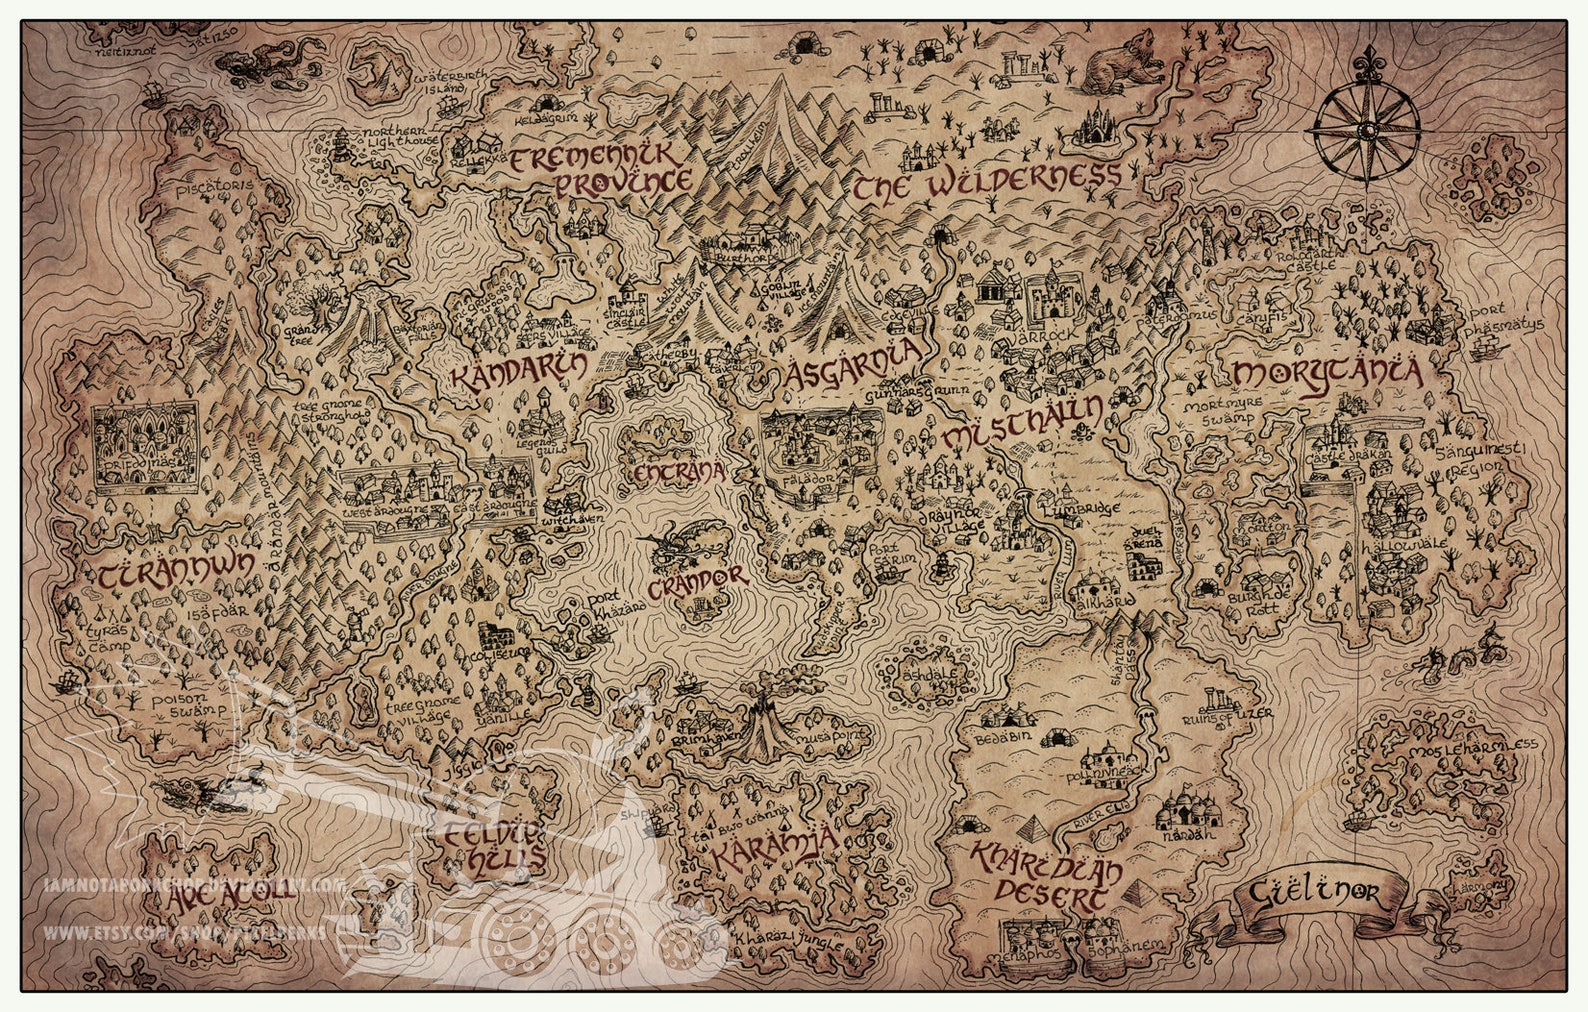 Neitiznot
Jatizso
Waterbirth
Island
Keldagrim
Northern
Lighthouse
Rellekka
Fremennik
Province
Trollheim
The Wilderness
Piscatoris
Eagles
Peak
Grand
Tree
Baxtorian
Falls
McGrubor's
Wood
Seers Village
Sinclair
Castle
White
Wolf
Mountain
Burthorpe
Goblin
Village
Ice Mountain
Edgeville
Varrock
Paterdomus
Canifis
Port
Phasmatys
Kandarin
Catherby
Taverley
Asgarnia
Gunnarsgrunn
Misthalin
Morytania
Mortmyre
Swamp
Tree Gnome
Stronghold
Legends
Guild
Entrana
Falador
Prifddinas
Arandar Mountains
West Ardougne
East Ardougne
Witchaven
Draynor
Village
Lumbridge
Castle Drakan
Sanguinesti
Region
Tirannwn
River Dougne
Crandor
Port
Sarim
Duel
Arena
River Lum
Al Kharid
Mortton
Hallowvale
Burgh de
Rott
Isafdar
Tyras
Camp
Port
Khazard
Mudskipper
Point
Coliseum
Poison
Swamp
Tree Gnome
Village
Yanille
Ashdale
Shantay
Pass
Bedabin
Ruins of Uzer
Brimhaven
Musa Point
Jiggig
Pollnivneach
Mos Le Harmless
River Elid
Nardah
Shipyard
Tai Bwo Wannai
Karamja
Feldip
Hills
Kharidian
Desert
Gielinor
Harmony
IAMNOTAPORKCHOP.DEVIANTART.COM
Ape Atoll
WWW.ETSY.COM/SHOP/PIXELDERKS
Kharazi Jungle
Menaphos
Sophanem